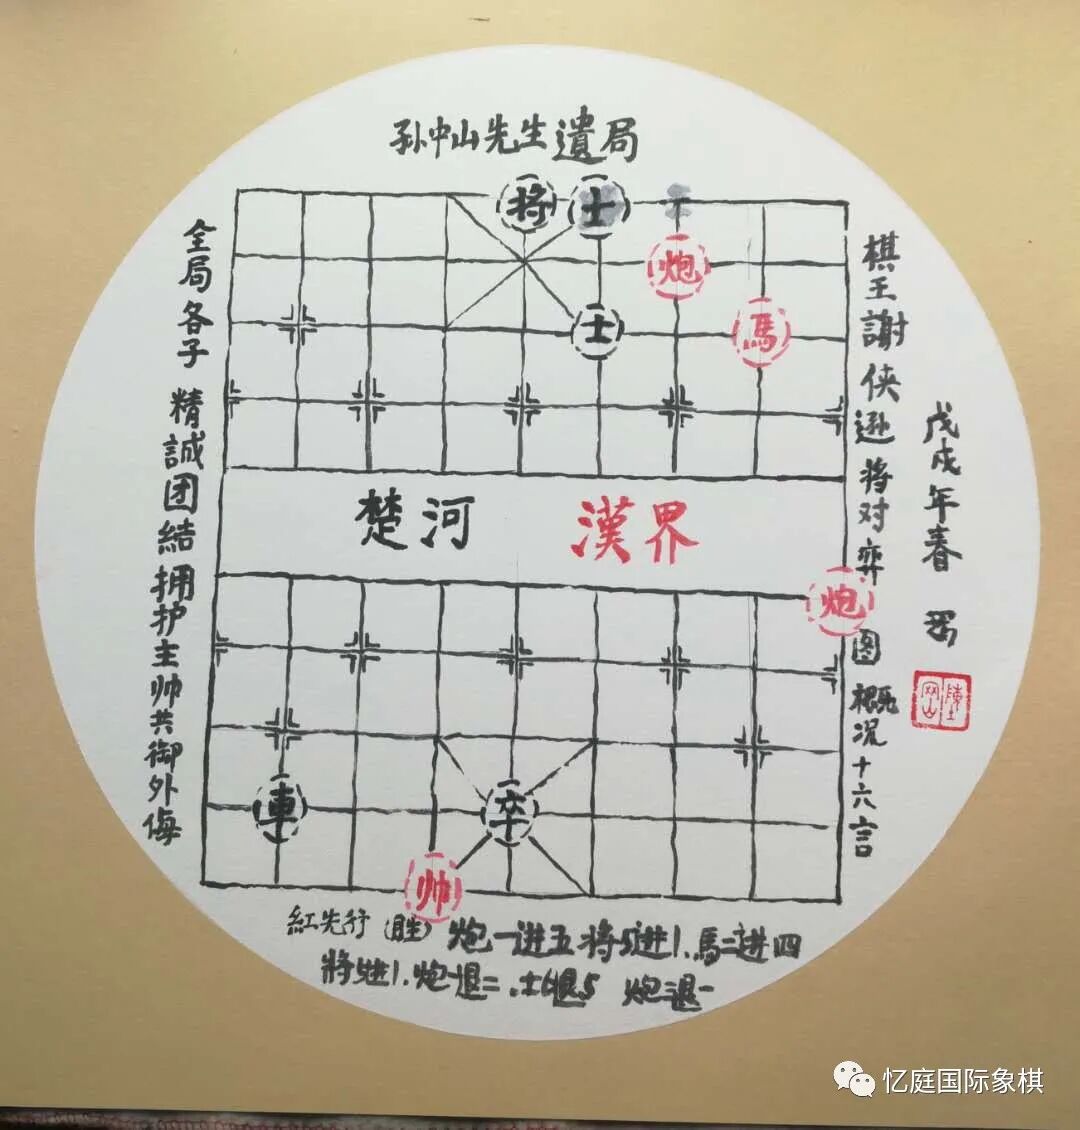 孙中山先生遺局
将 士
炮
士 馬
楚河 漢界
炮
車 卒
帅
棋王謝侠逊将对弈图概况十六言
戊戌年春
全局各子精誠团結拥护主帅共御外侮
紅先行(胜) 炮一进五 将5进1. 馬二进四
将5进1. 炮一退二. 士6退5 炮三退一
忆庭国际象棋